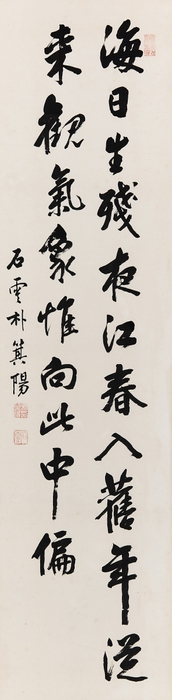 海日生殘夜江春入舊年從
來觀氣象惟向此中偏
石雲朴箕陽